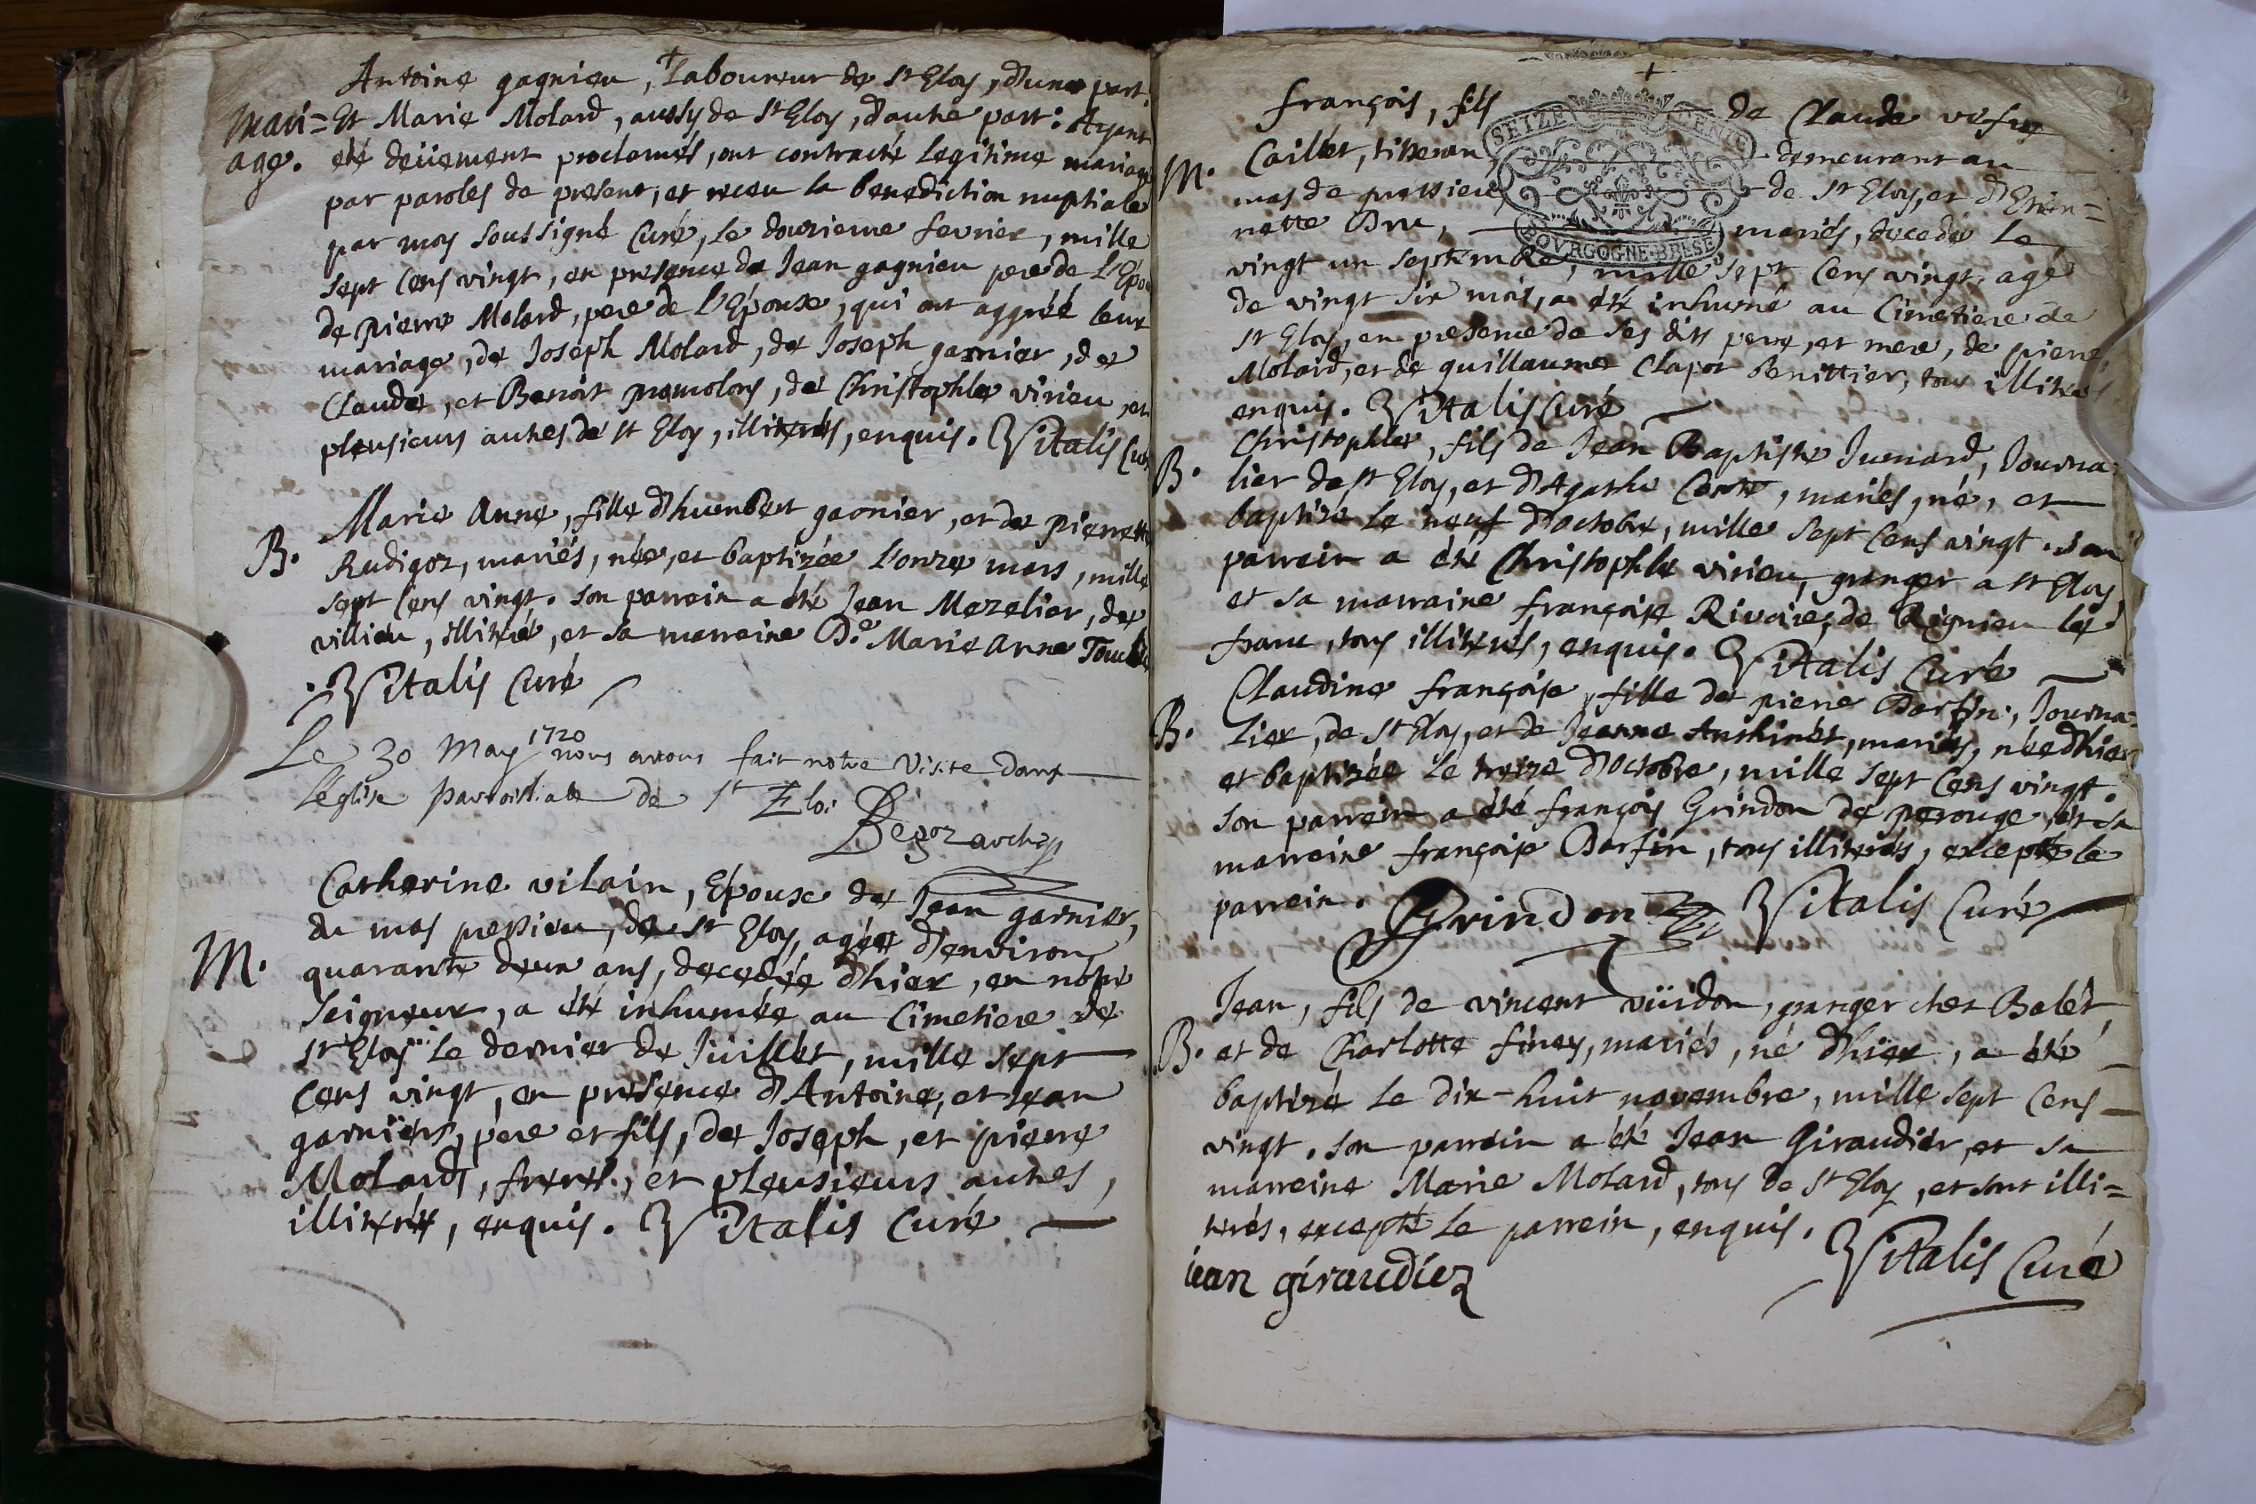 Antoine gagnieu, Laboureur de St Eloy, d'une part.
Mari= Et Marie Molard, aussy de St Eloy, d'autre part: Ayant
age. eté deüement proclamés, ont contracté legitime mariage
par paroles de present, et receu la benediction nuptiale
par moy soussigné Curé, le douzieme fevrier, mille
sept Cens vingt, en presence de Jean gagnieu pere de l'Epou
de pierre Molard, pere de l'Epouse, qui ont aggréé leur
mariage, de Joseph Molard, de Joseph garnier, de
Claude, et Benoit promolons, de Christophle virieu, et
pleusieurs autres de St Eloy, illiterés, enquis. Vitalis Curé
Marie Anne, fille d'humbert garnier, et de pierrette
B. Rudigoz, mariés, née, et baptizée l'onze mars, mille
sept Cens vingt. son parrein a été Jean Mezelier, de
villieu, illiteré, et sa marreine De. Marie Anne
Vitalis Curé
Le 30 May 1720 nous avons fait notre Visite dans
l'eglise parroissiale de St Eloi
Begoz archip
Catherine vilain, Epouse de Jean garnier,
du mas pessieu, de St Eloy, agée d'environ
M. quarante deux ans, decedée d'hier, en nôtre
Seigneur, a été inhumée au Cimetiere de
St Eloy le dernier de Juillet, mille sept
Cens vingt, en presence d'Antoine, et Jean
garniers, pere et fils, de Joseph, et pierre
Molards, freres, et pleusieurs autres,
illiterés, enquis. Vitalis Curé
SEIZE CENTS
BOURGOGNE-BRESSE
françois, fils de Claude
M. Caillet, tisseran demeurant au
mas de de St Eloy, et d'Etien=
nette Bru, mariés, decedé le
vingt un septembre, mille sept Cens vingt, agé
de vingt six mois, a été inhumé au Cimetiere de
St Eloy, en presence de ses dits pere, et mere, de pierre
Molard, et de guillaume Clapot benittier, tous illiterés
enquis. Vitalis Curé
Christophle, fils de Jean Baptiste Jumard, Journa
B. lier de St Eloy, et d'Agathe Conte, mariés, né, et
baptizé le neuf d'octobre, mille sept Cens vingt. son
parrein a été Christophle virieu, granger a St Eloy,
et sa marraine françoise Rivoire, de Rignieu le
franc, tous illiterés, enquis. Vitalis Curé
Claudine françoise, fille de pierre Barfin, Journa=
B. lier, de St Eloy, et de Jeanne Anthinet, mariés, née d'hier
et baptizée le treize d'octobre, mille sept Cens vingt.
son parrein a été françois Grindon de perouge, et sa
marreine françoise Barfin, tous illiterés, excepté le
parrein. Grindon Vitalis Curé
Jean, fils de vincent vüidon, granger chez Balet,
B. et de Charlotte finey, mariés, né d'hier, a été
baptizé le dix-huit novembre, mille sept Cens
vingt. son parrein a été Jean Giraudier, et sa
marreine Marie Molard, tous de St Eloy, et sont illi=
terés, excepté le parrein, enquis. Vitalis Curé
iean giraudiez